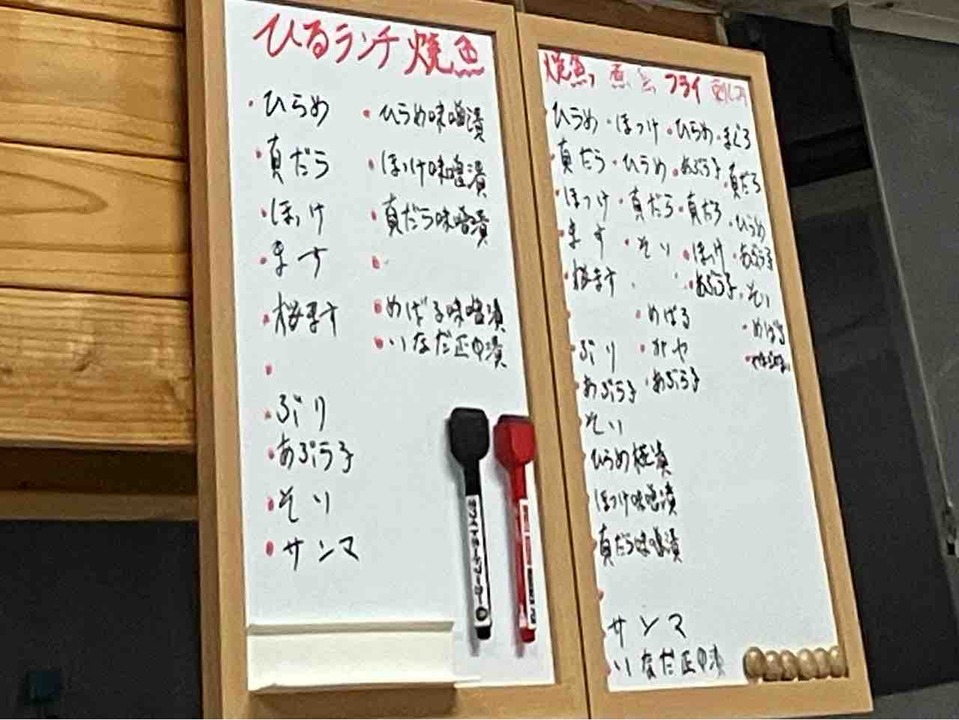 ひるランチ 焼魚
・ひらめ
・真だら
・ほっけ
・ます
・桜ます
・ぶり
・あぶら子
・そい
・サンマ
・ひらめ味噌漬
・ほっけ味噌漬
・真だら味噌漬
・めばる味噌漬
・いなだ
ホワイトボードマーカー
焼魚 煮魚 フライ 刺し
ひらめ ・ほっけ ・ひらめ ・まぐろ
真だら ・ひらめ ・あぶら子 ・真だら
ほっけ ・真だら ・真だら ・ひらめ
ます ・そい ・ほっけ ・あぶら子
桜ます ・あぶら子 ・そい
・めばる ・めばる
・ぶり
あぶら子 ・あぶら子
・そい
ひらめ 漬
ほっけ味噌漬
真だら味噌漬
サンマ
いなだ